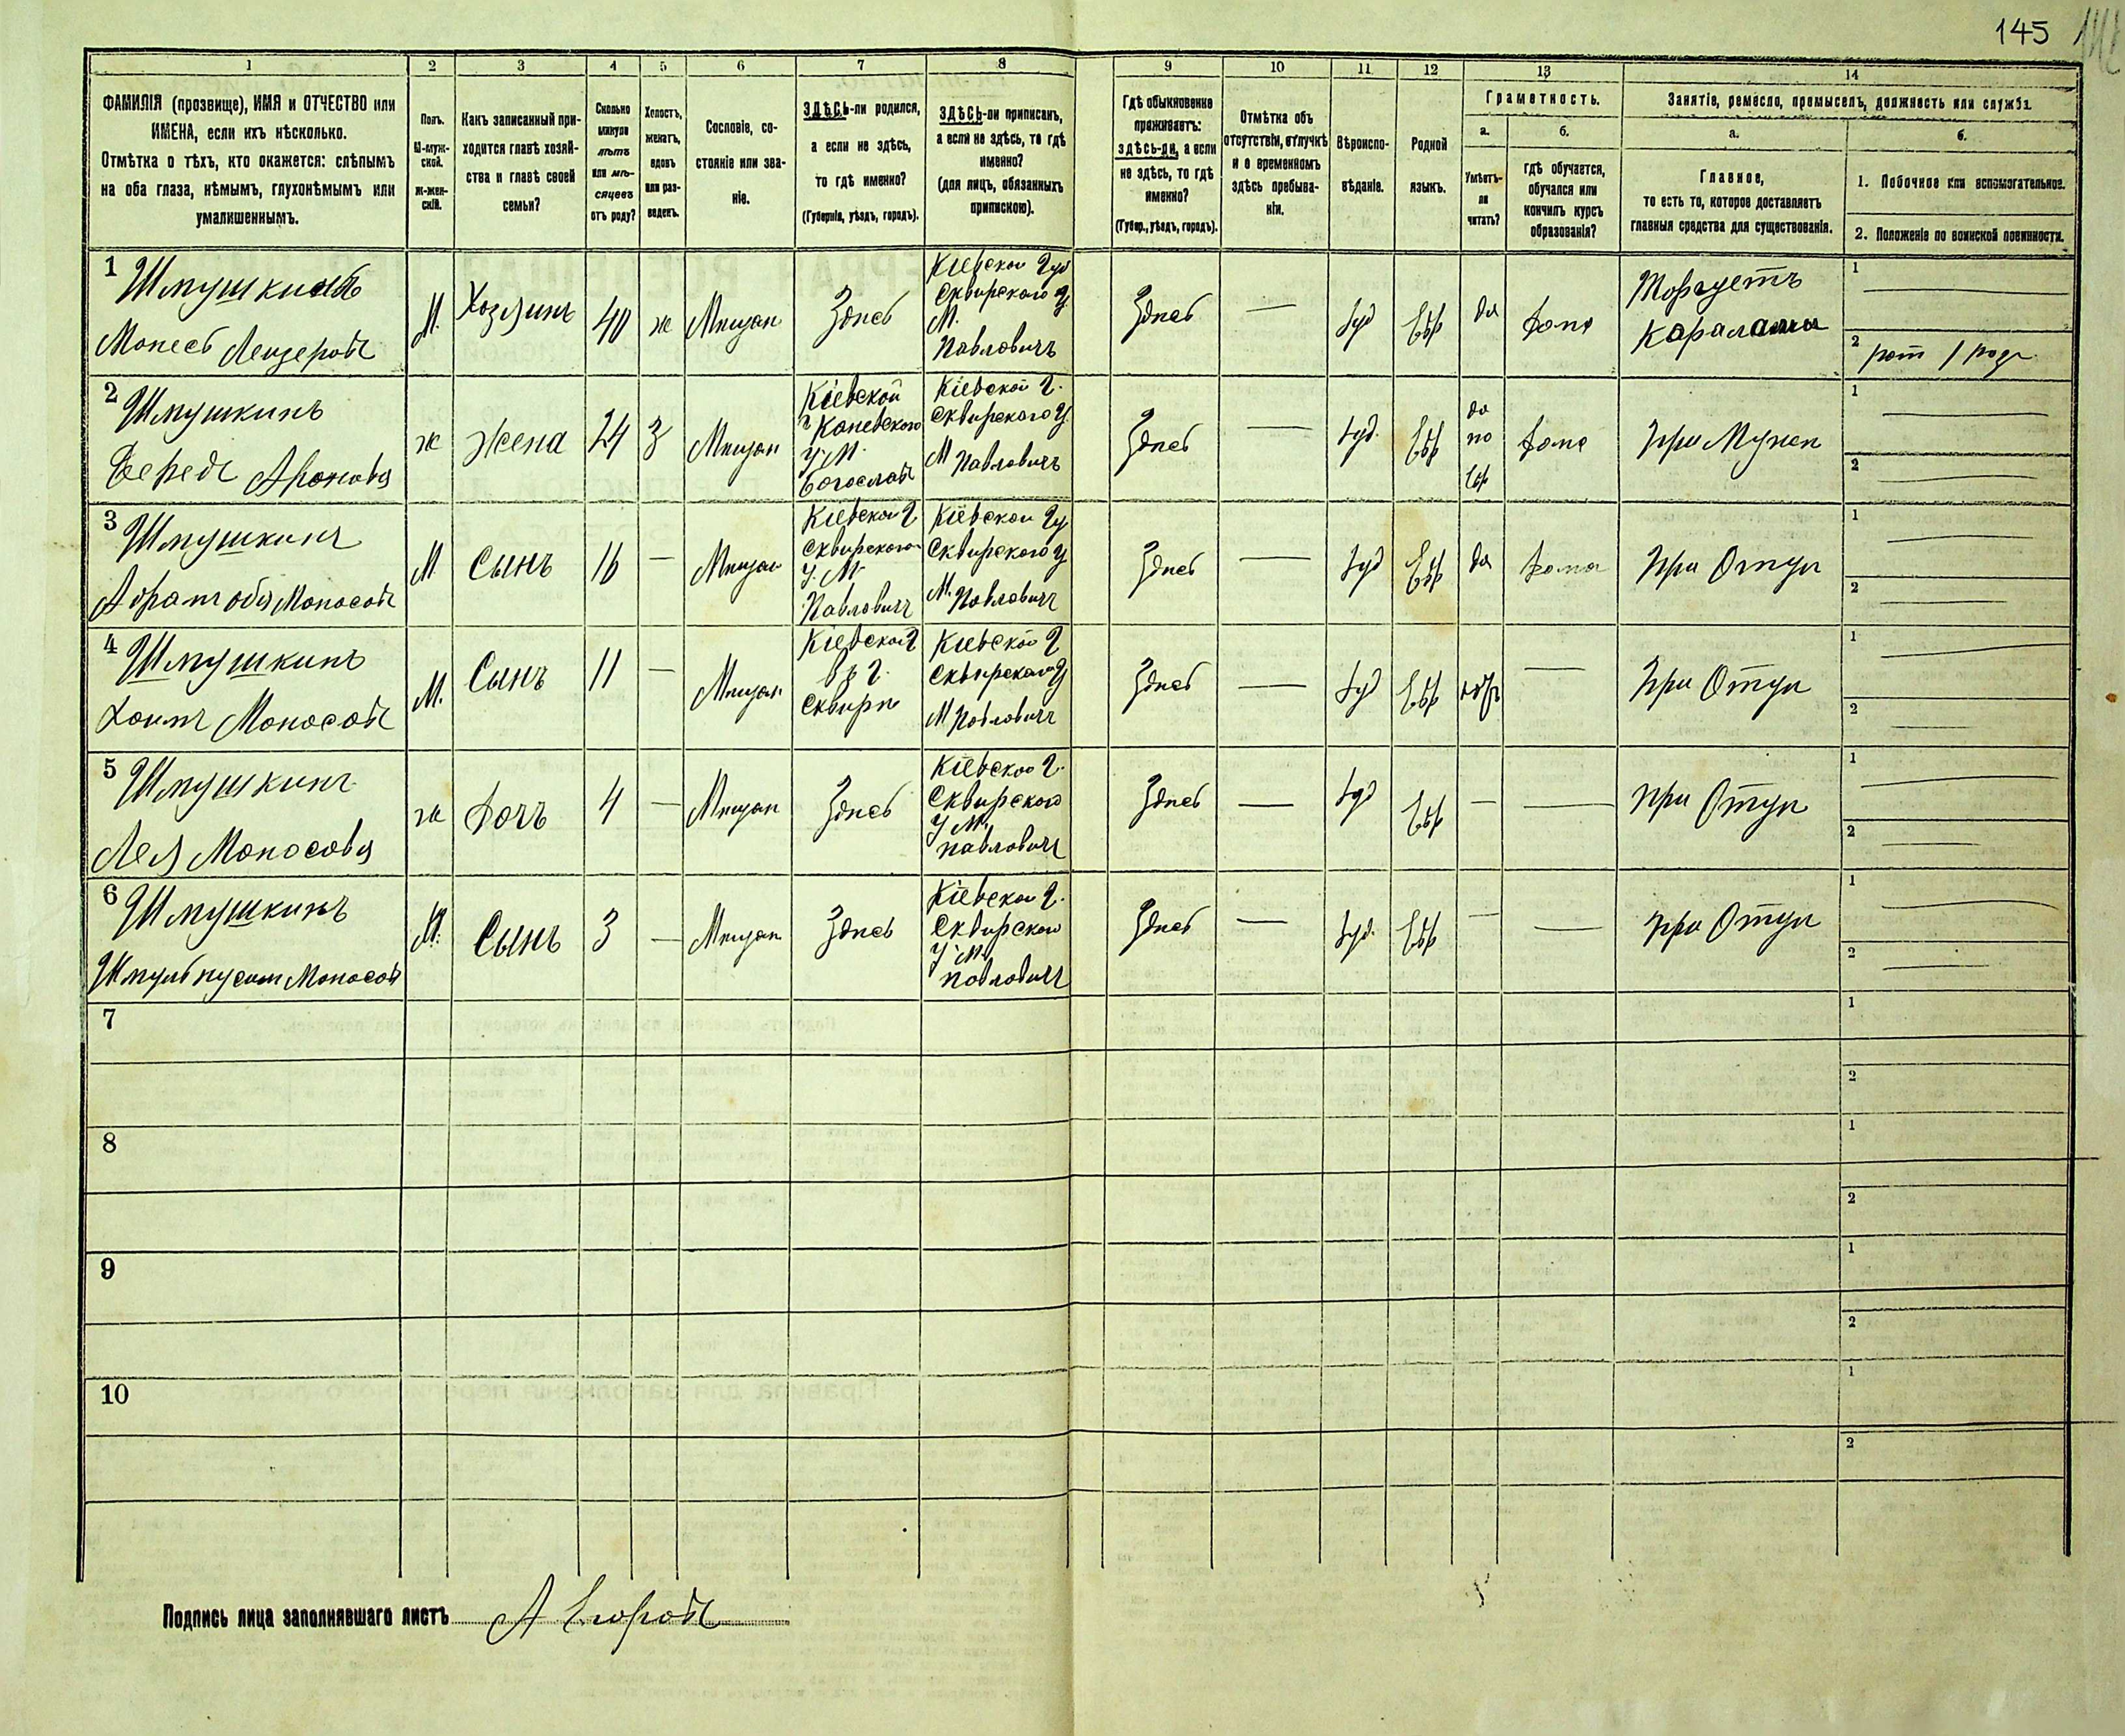 145
1
2
3
4
5
6
7
8
9
10
11
12
13
14
ФАМИЛІЯ (прозвище), ИМЯ и ОТЧЕСТВО или
ИМЕНА, если ихъ нѣсколько.
Отмѣтка о тѣхъ, кто окажется: слѣпымъ
на оба глаза, нѣмымъ, глухонѣмымъ или
умалишеннымъ.
Полъ.
М-муж-
ской.
ж-жен-
скій.
Какъ записанный при-
ходится главѣ хозяй-
ства и главѣ своей
семьи?
Сколько
минуло
лѣтъ
или мѣ-
сяцевъ
отъ роду?
Холостъ,
женатъ,
вдовъ
или раз-
веденъ.
Сословіе, со-
стояніе или зва-
ніе.
ЗДѢСЬ-ли родился,
а если не здѣсь,
то гдѣ именно?
(Губернія, уѣздъ, городъ).
ЗДѢСЬ-ли приписанъ,
а если не здѣсь, то гдѣ
именно?
(для лицъ, обязанныхъ
припискою).
Гдѣ обыкновенно
проживаетъ:
здѣсь-ли, а если
не здѣсь, то гдѣ
именно?
(Губер., уѣздъ, городъ).
Отмѣтка объ
отсутствіи, отлучкѣ
и о временномъ
здѣсь пребыва-
ніи.
Вѣроиспо-
вѣданіе.
Родной
языкъ.
Грамотность.
а.
Умѣетъ-
ли
читать?
б.
Гдѣ обучается,
обучался или
кончилъ курсъ
образованія?
Занятіе, ремесло, промыселъ, должность или служба.
а.
Главное,
то есть то, которое доставляетъ
главныя средства для существованія.
б.
1. Побочное или вспомогательное.
2. Положеніе по воинской повинности.
1
Шмушкинъ
Монесъ Лейзеровъ
М.
Хозяинъ
40
ж
Мѣщан
Здѣсь
Кіевской Губ
Сквирского У.
М.
Павловичъ
Здѣсь
—
Іуд
Евр
да
дома
Торгуетъ
1
2
2
Шмушкинъ
Аронова
ж
Жена
24
З
Мѣщан
Кіевской
Г Каневского
У. М.
Богослав
Кіевской Г.
Сквирского У.
М Павловичъ
Здѣсь
—
Іуд.
Евр
да
по
Евр
дома
при Мужѣ
1
2
3
Шмушкинъ
М
Сынъ
16
—
Мѣщан
Кіевской Г
Сквирского
У. М.
Павловичъ
Кіевской Гу
Сквирского У
М. Павловичъ
Здѣсь
—
Іуд
Евр
да
дома
при Отцѣ
1
2
4
Шмушкинъ
Хаимъ Моносовъ
М.
Сынъ
11
—
Мѣщан
Кіевской Г
въ г.
Сквирѣ
Кіевской Г
Сквирского У
М Павловичъ
Здѣсь
—
Іуд
Евр
—
при Отцѣ
1
2
5
Шмушкинъ
Лея Моносова
ж
Дочъ
4
—
Мѣщан
Здѣсь
Кіевской Г.
Сквирского
У М.
Павловичъ
Здѣсь
—
Іуд
Евр
—
—
при Отцѣ
1
2
6
Шмушкинъ
М.
Сынъ
3
—
Мѣщан
Здѣсь
Кіевской Г.
Сквирского
У М.
Павловичъ
Здѣсь
—
Іуд.
Евр
—
—
при Отцѣ
1
2
7
1
2
8
1
2
9
1
2
10
1
2
Подпись лица заполнявшаго листъ